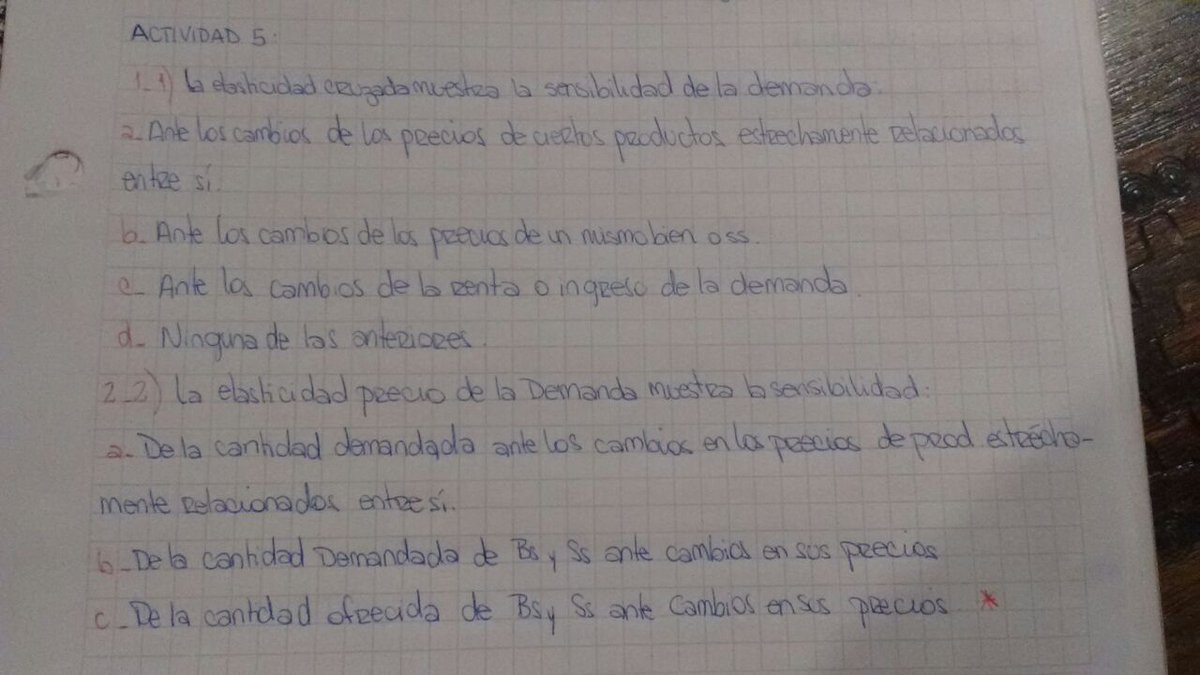 ACTIVIDAD 5.
1_1) la elasticidad cruzada muestra la sensibilidad de la demanda:
a. Ante los cambios de los precios de ciertos productos estrechamente relacionados
entre sí.
b. Ante los cambios de los precios de un mismo bien o ss.
c_ Ante los cambios de la renta o ingreso de la demanda.
d_ Ninguna de las anteriores.
2_2) la elasticidad precio de la Demanda muestra la sensibilidad:
a_ De la cantidad demandada ante los cambios en los precios de prod estrecha-
mente relacionados entre sí.
b_ De la cantidad Demandada de Bs y Ss ante cambios en sus precios
c_ De la cantdad ofrecida de Bs y Ss ante cambios en sus precios *